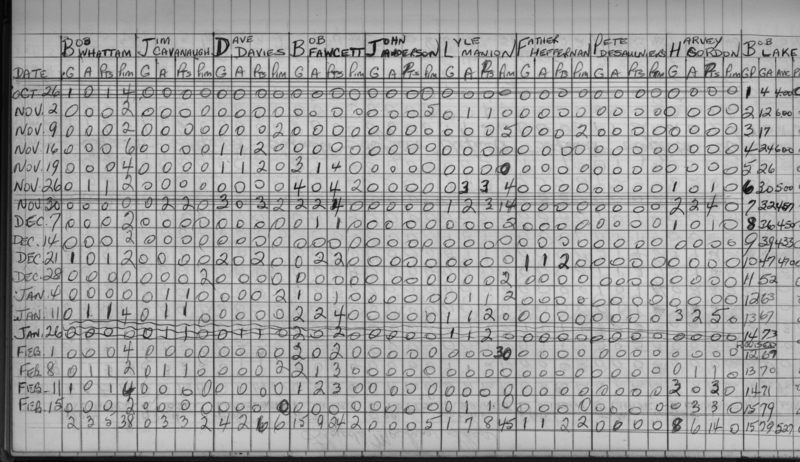 BOB WHATTAM JIM CAVANAUGH DAVE DAVIES BOB FAWCETT JOHN ANDERSON LYLE MANION FATHER HEFFERNAN PETE DESAULNIERS HARVEY GORDON BOB LAKE
DATE G A Pts Pim G A Pts Pim G A Pts Pim G A Pts Pim G A Pts Pim G A Pts Pim G A Pts Pim G A Pts Pim G A Pts Pim GP GA AVE
OCT. 26 1 0 1 4 0 0 0 0 0 0 0 0 0 0 0 0 0 0 0 0 0 0 0 0 0 0 0 0 0 0 0 0 0 0 0 0 1 4 400
NOV. 2 0 0 0 2 0 0 0 0 0 0 0 0 0 0 0 0 0 0 0 5 0 1 1 0 0 0 0 0 0 0 0 0 0 0 0 0 2 12 600
NOV. 9 0 0 0 2 0 0 0 0 0 0 0 2 0 0 0 0 0 0 0 0 0 0 0 5 0 0 0 2 0 0 0 0 0 0 0 0 3 17
NOV. 16 0 0 0 6 0 0 0 0 1 1 2 0 0 0 0 0 0 0 0 0 0 0 0 0 0 0 0 0 0 0 0 0 0 0 0 0 4 24 600
NOV. 19 0 0 0 4 0 0 0 0 1 1 2 0 3 1 4 0 0 0 0 0 0 0 0 0 0 0 0 0 0 0 0 0 0 0 0 0 5 26
NOV. 26 0 1 1 2 0 0 0 0 0 0 0 0 4 0 4 2 0 0 0 0 0 3 3 4 0 0 0 0 0 0 0 0 1 0 1 0 6 30 500
NOV. 30 0 0 0 0 0 2 2 0 3 0 3 2 2 2 4 0 0 0 0 0 1 2 3 14 0 0 0 0 0 0 0 0 2 2 4 0 7 32 457
DEC. 7 0 0 0 2 0 0 0 0 0 0 0 0 0 1 1 0 0 0 0 0 0 0 0 2 0 0 0 0 0 0 0 0 1 0 1 0 8 36 450
DEC. 14 0 0 0 2 0 0 0 0 0 0 0 0 0 0 0 0 0 0 0 0 0 0 0 0 0 0 0 0 0 0 0 0 0 0 0 0 9 39 433
DEC. 21 1 0 1 2 0 0 0 0 2 0 2 0 0 2 2 0 0 0 0 0 0 0 0 0 1 1 2 0 0 0 0 0 0 0 0 0 10 47 470
DEC. 28 0 0 0 0 0 0 0 2 0 0 0 0 0 0 0 0 0 0 0 0 0 0 0 2 0 0 0 0 0 0 0 0 0 0 0 0 11 52
JAN. 4 0 0 0 0 0 1 1 0 0 0 0 2 1 0 1 0 0 0 0 0 0 1 1 2 0 0 0 0 0 0 0 0 0 0 0 0 12 63
JAN. 11 0 1 1 4 0 1 1 0 0 0 0 0 2 2 4 0 0 0 0 0 1 1 2 0 0 0 0 0 0 0 0 0 3 2 5 0 13 67
JAN. 26 0 0 0 0 0 1 1 0 0 0 0 0 2 0 2 0 0 0 0 0 1 1 2 0 0 0 0 0 0 0 0 0 0 0 0 0 14 73
FEB. 1 0 0 0 4 0 0 0 0 0 0 0 0 2 0 2 0 0 0 0 0 0 0 0 30 0 0 0 0 0 0 0 0 0 0 0 0 12 67
FEB. 8 0 1 1 2 0 1 1 0 0 0 0 2 2 1 3 0 0 0 0 0 0 0 0 0 0 0 0 0 0 0 0 0 0 1 1 0 13 70
FEB. 11 1 0 1 4 0 0 0 0 0 0 0 0 1 2 3 0 0 0 0 0 0 0 0 0 0 0 0 0 0 0 0 0 0 0 14 71
FEB. 15 0 0 0 2 0 0 0 0 0 0 0 0 0 0 0 0 0 0 0 0 0 1 1 0 0 0 0 0 0 0 0 0 0 3 3 0 15 79
2 3 3 38 0 3 3 2 4 2 6 6 15 9 24 2 0 0 0 5 1 7 8 45 1 1 2 2 0 0 0 0 8 6 14 0 15 79 527